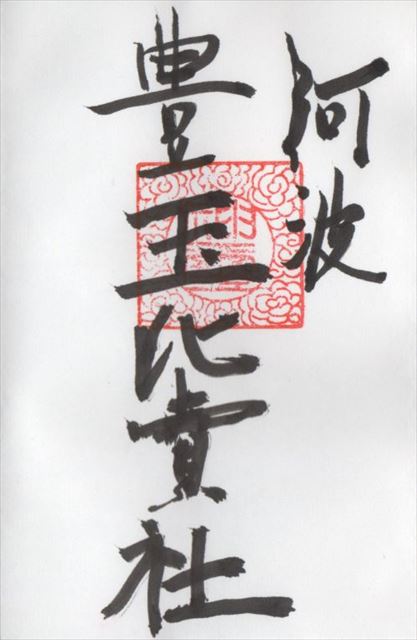 阿波
豊玉比賣社